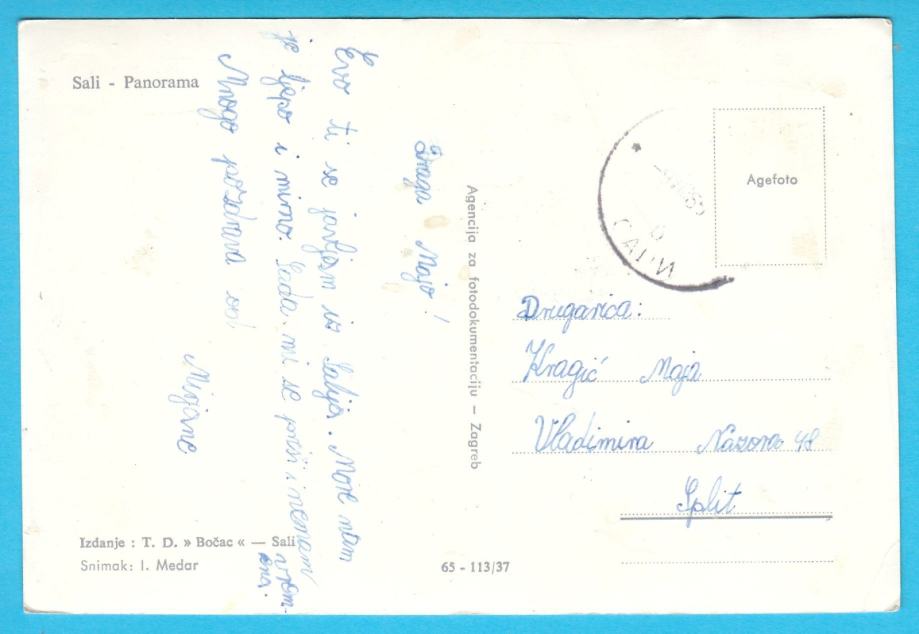 Sali - Panorama
Draga Majo!
Evo ti se javljam iz Salija. More nam
je ljepo i mirno. Sada mi se piši i nemam
vrom-
ena.
Mnogo pozdrava od
Mirjane
Izdanje : T. D. » Bočac « — Sali
Snimak: I. Medar
65 - 113/37
Agencija za fotodokumentaciju — Zagreb
Agefoto
Drugarica:
Kragić Maja
Vladimira Nazora 48
Split